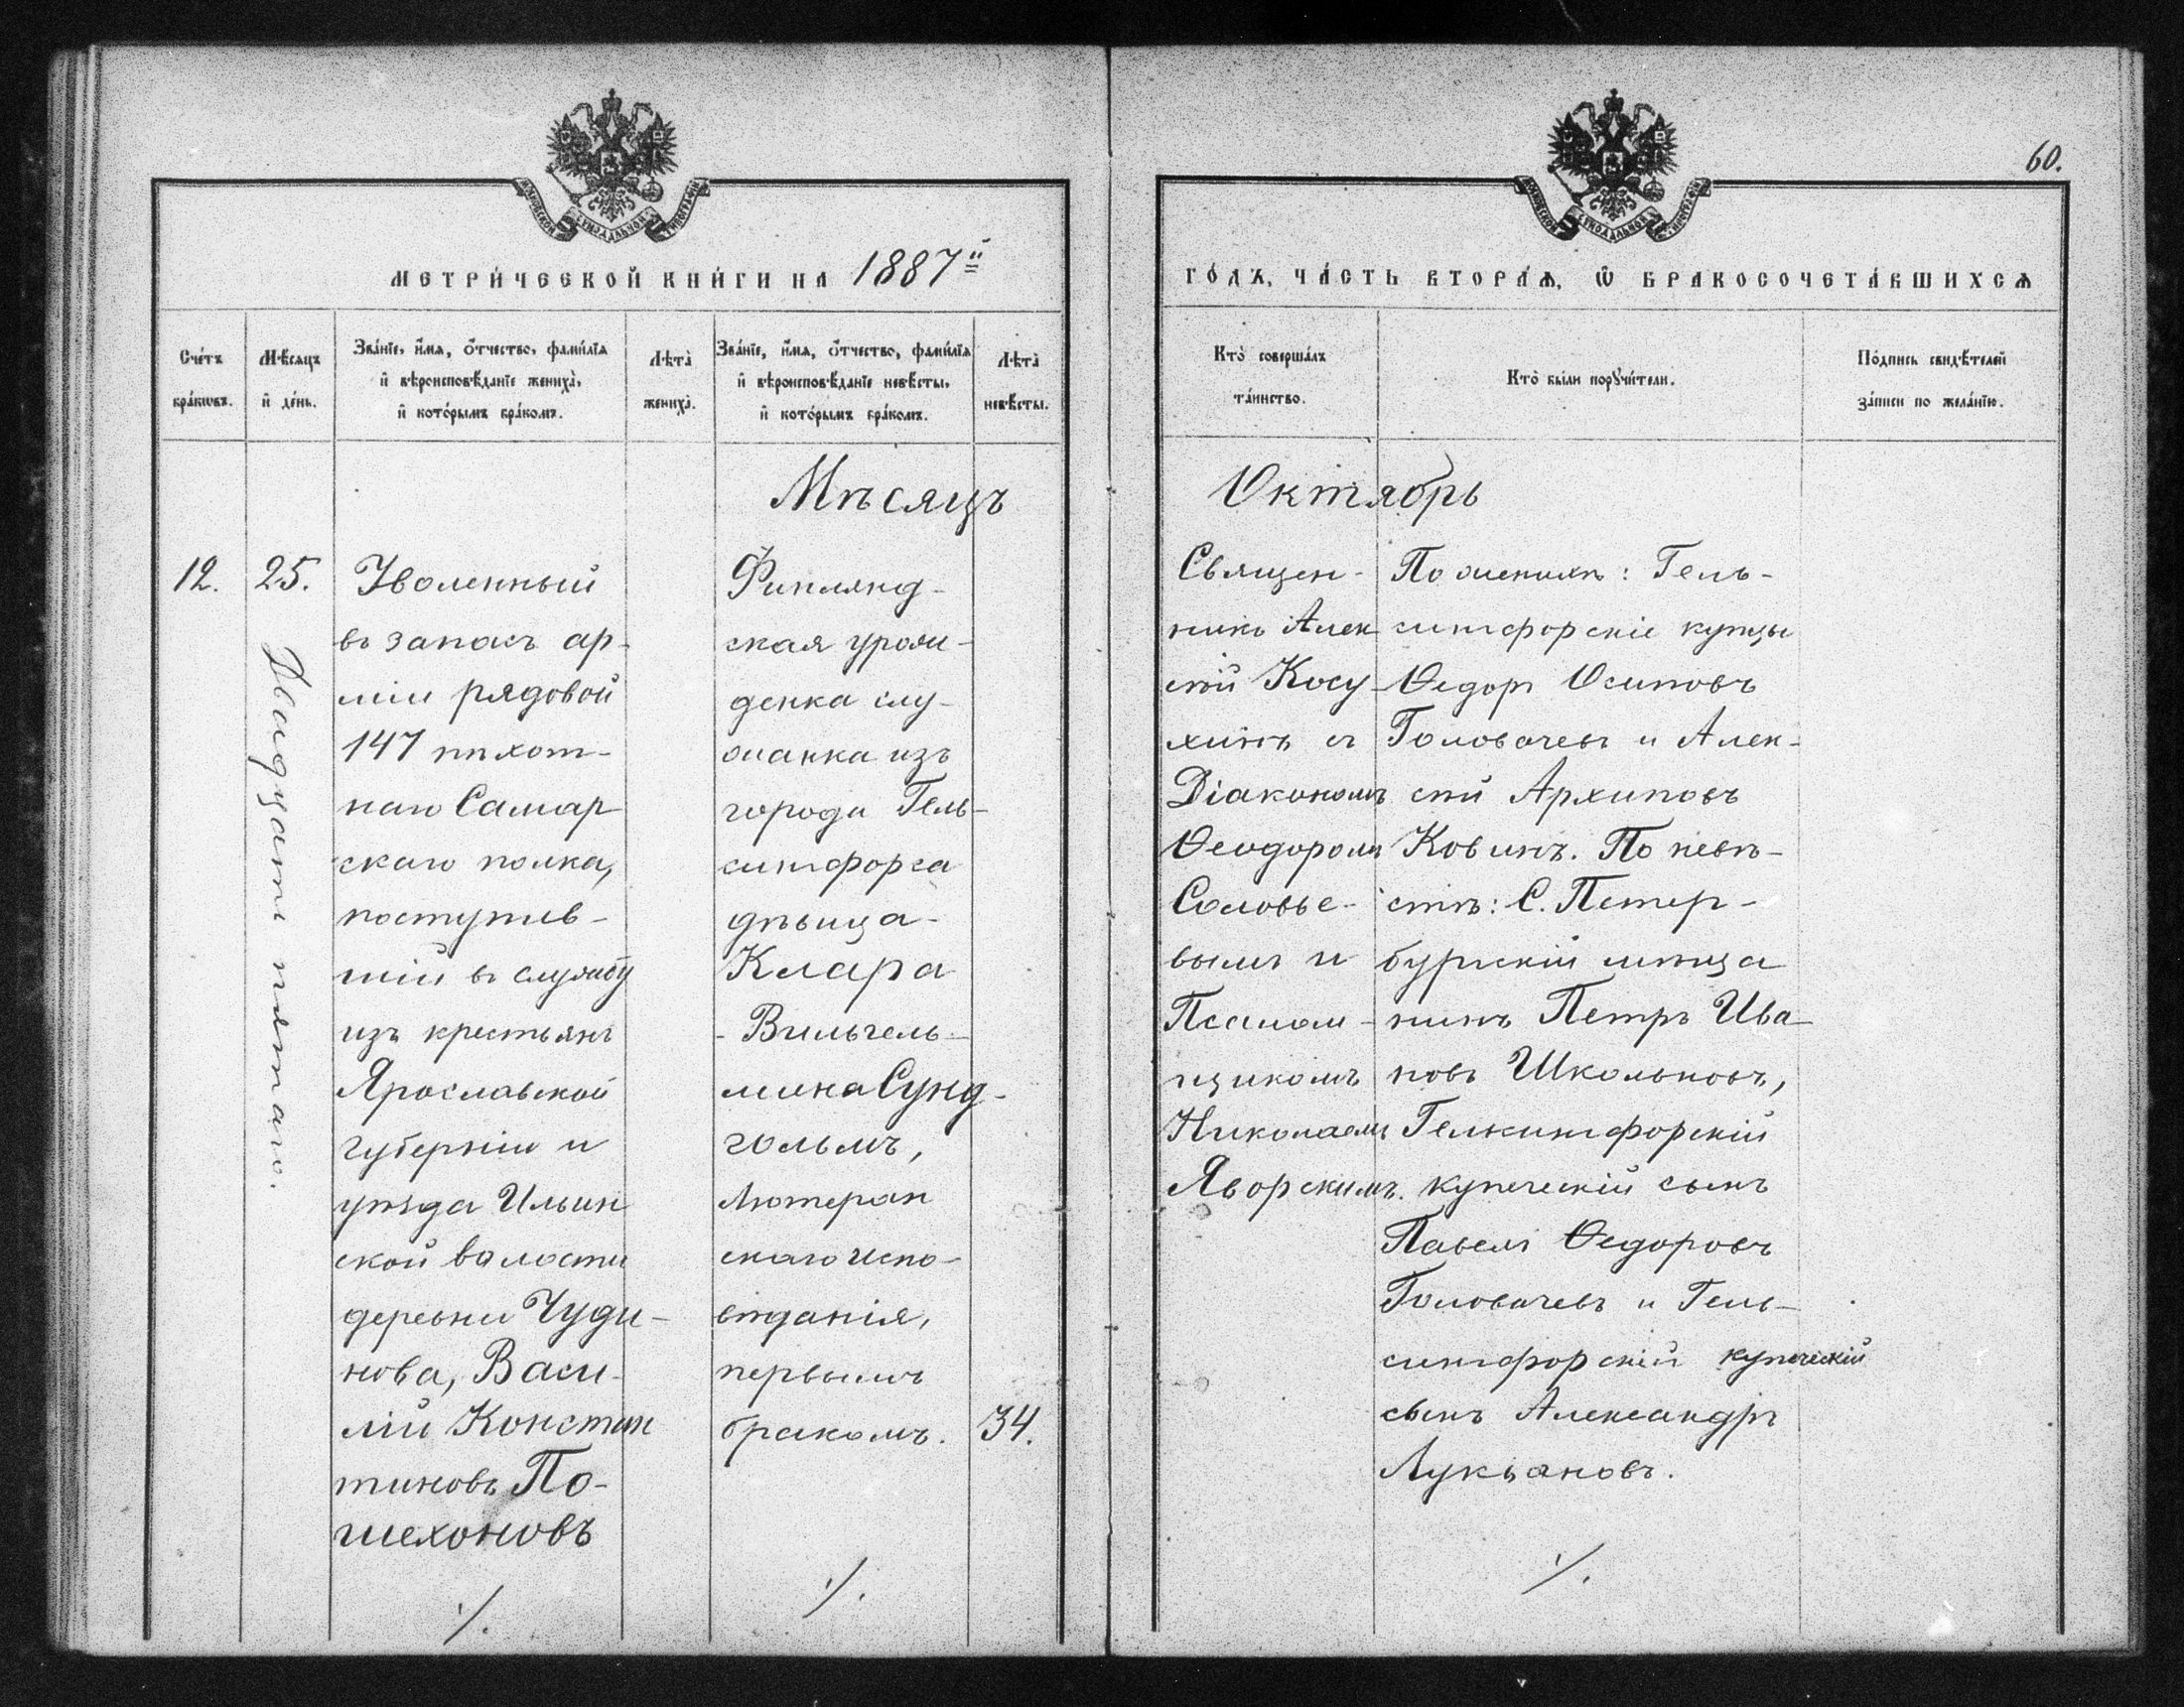 60.
МЕТРИ́ЧЕСКОЙ КНИ́ГИ НА 1887й
ГО́ДЪ, ЧА́СТЬ ВТОРА́Ѧ, Ѽ БРАКОСОЧЕТА́ВШИХСѦ
Сче́тъ
бра́ковъ.
Мѣ́сяцъ
и҆ де́нь.
Зва́нїе, и҆́мя, о҆́тчество, фами́лїя
и҆ вѣроисповѣ́данїе жениха̀,
и҆ кото́рымъ бра́комъ.
Лѣта̀
жениха̀.
Зва́нїе, и҆́мя, о҆́тчество, фами́лїя
и҆ вѣроисповѣ́данїе невѣ́сты,
и҆ кото́рымъ бра́комъ.
Лѣта̀
невѣ́сты.
Кто̀ соверша́лъ
та́инство.
Кто̀ бы́ли порꙋчи́тели.
По́дпись свидѣ́телей
за́писи по жела́нїю.
Мѣсяцъ
Октябрь
12.
25.
Двадцать пятаго.
Уволенный
въ запасъ ар-
міи рядовой
147 пѣхот-
наго Самар
скаго полка,
поступив-
шій въ службу
изъ крестьянъ
Ярославской
губерніи и
уѣзда Ильин
ской волости
деревни Чуди-
нова, Васи-
лій Констан
тиновъ По-
шехоновъ
·/.
Финлянд-
ская уроже-
денка слу-
жанка изъ
города Гель-
сингфорса
дѣвица-
Клара
- Вильгель-
мина Сунд-
гольмъ,
Лютеран
скаго испо-
вѣданія,
первымъ
бракомъ.
34.
·/.
Священ-
никъ Алек
сѣй Косу-
хинъ съ
Діакономъ
Ѳеодоромъ
Соловье-
вымъ и
Псалом-
щикомъ
Николаемъ
Яворскимъ.
По женихѣ: Гель-
сингфорскіе купцы
Ѳедоръ Осиповъ
Головачевъ и Алек-
сѣй Архиповъ
Ковинъ. По невѣ-
стѣ: С. Петер-
бургскій мѣща
нинъ Петръ Ива-
новъ Школьновъ,
Гельсингфорскій
купеческій сынъ
Павелъ Ѳедоровъ
Головачевъ и Гель-
сингфорскій купеческій
сынъ Александръ
Лукьяновъ.
·/.